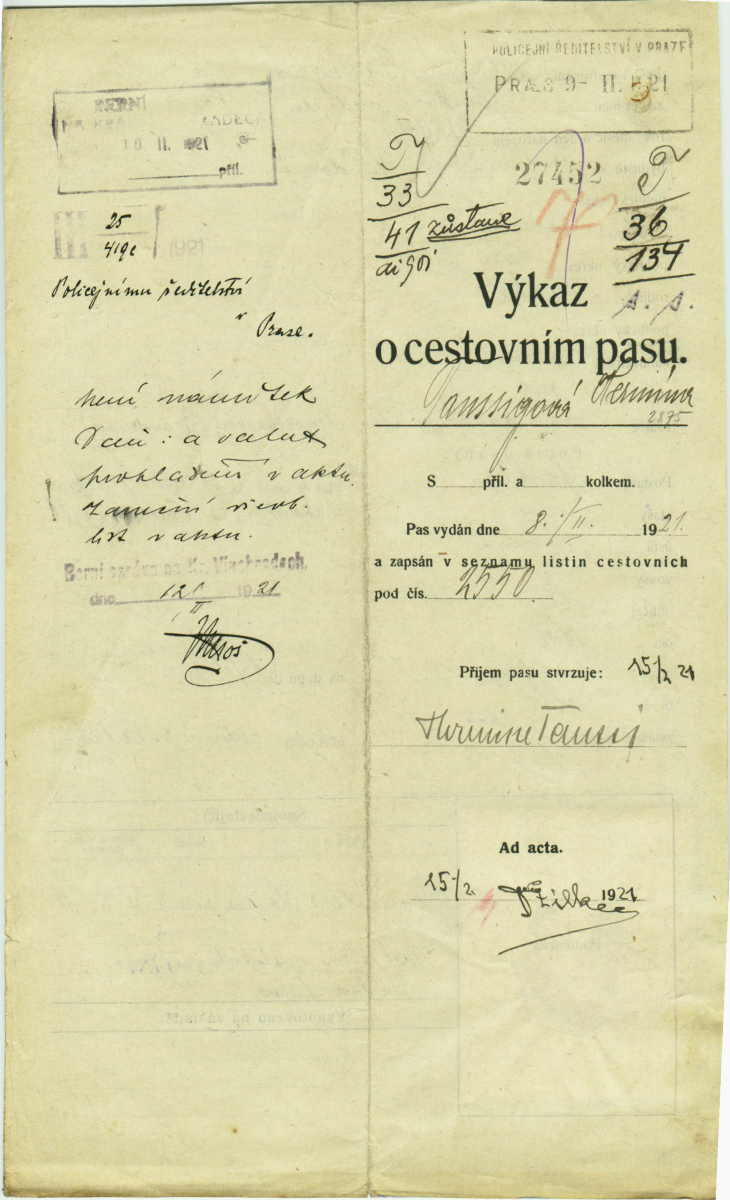 BERNÍ
10 II. 1921
příl.
25
419e
1921
Policejnímu ředitelství
v
Praze.
není námitek
Daň: a valut
prohlášení v aktu.
list v aktu.
Berní správa na Kr. Vinohradech.
dne 12/II 1921
POLICEJNÍ ŘEDITELSTVÍ V PRAZE
PRAES 9- II. 1921
27452
T
33
41 zůstane
T
36
134
s. s.
Výkaz
o cestovním pasu.
Taussigová Hermina
2875
S příl. a kolkem.
Pas vydán dne 8./II. 1921.
a zapsán v seznamu listin cestovních
pod čís. 2550.
Příjem pasu stvrzuje: 15/2 21
Hermine Taussig
Ad acta.
15/2. 1921